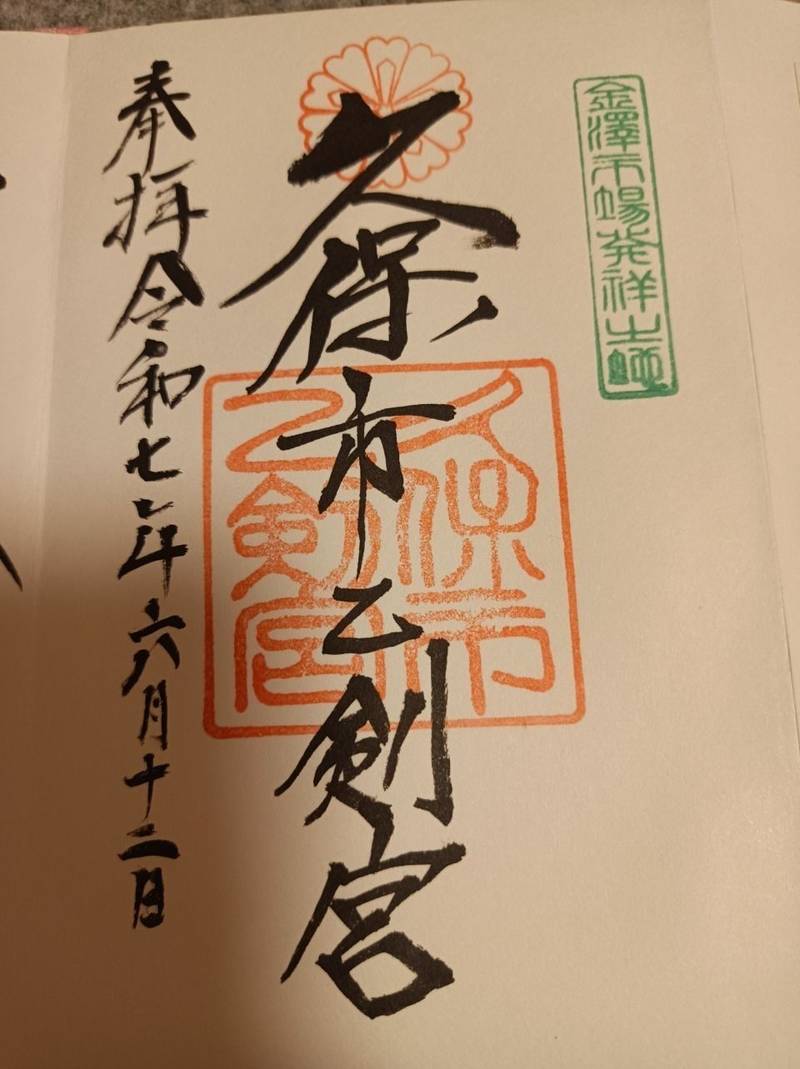 金澤市場発祥之地
久保市乙剣宮
久保市
乙剣宮
奉拝令和七年六月十二日